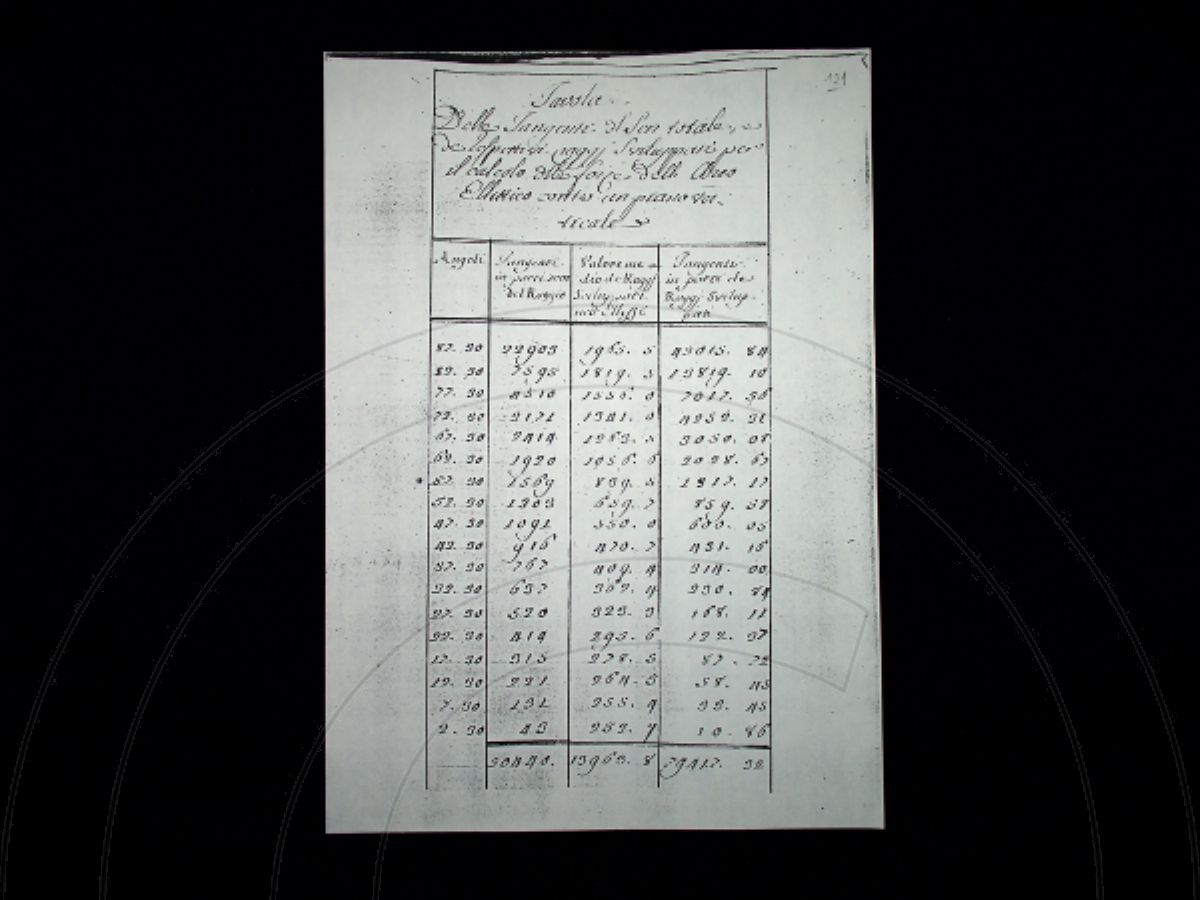 121
Tavola
Delle Tangenti del Sen totale, e
de Rispettivi raggj Sviluppati per
il calcolo delle forze dell' Arco
Ellittico contro un piano ver-
ticale
Angoli Tangenti in parti 1000 del Raggio Valore medio de Raggj Sviluppati nell'Ellissi Tangenti in parte de Raggj Svilup-pati
87. 30 22903 1965. 5 45015. 84
82. 30 7595 1819. 5 13819. 10
77. 30 4510 1556. 0 7017. 56
72. 30 3171 1341. 0
67. 30 2414 1263. 5 3050. 08
62. 30 1920 1056. 6 2028. 67
57. 30 1569 839. 5 1317. 17
52. 30 1303 659. 7 859. 58
47. 30 1091 550. 0 600. 05
42. 30 916 470. 7 431. 16
37. 30 767 409. 4 314. 00
32. 30 637 362. 4 230. 84
27. 30 520 323. 3 168. 11
22. 30 414 295. 6 122. 37
17. 30 315 278. 5 87. 72
12. 30 221 264. 5 58. 45
7. 30 131 255. 4
2. 30 43 252. 7 10. 86
50440. 13963. 8 79417. 32